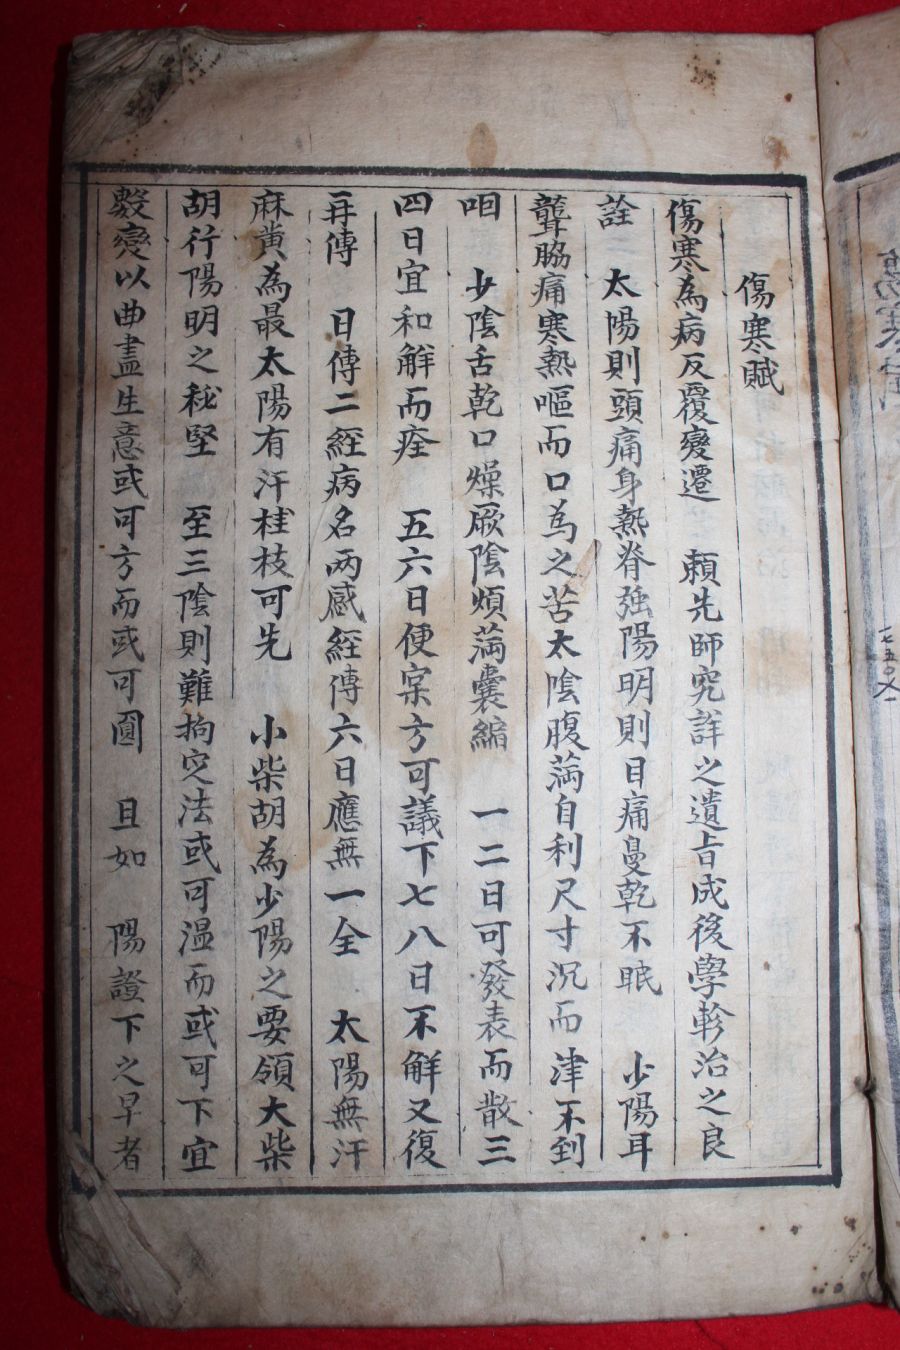 傷寒賦
傷寒為病反覆變遷 頼先師究詳之遺旨成後學軫治之良
詮 太陽則頭痛身熱脊強陽明則目痛鼻乾不眠 少陽耳
聾脇痛寒熱嘔而口為之苦太陰腹滿自利尺寸沉而津不到
咽 少陰舌乾口燥厥陰煩滿囊縮 一二日可發表而散三
四日宜和解而痊 五六日便実方可議下七八日不解又復
再傳 日傳二經病名兩感經傳六日應無一全 太陽無汗
麻黄為最太陽有汗桂枝可先 小柴胡為少陽之要領大柴
胡行陽明之秘堅 至三陰則難拘定法或可温而或可下宜
數變以曲盡生意或可方而或可圓 且如 陽證下之早者